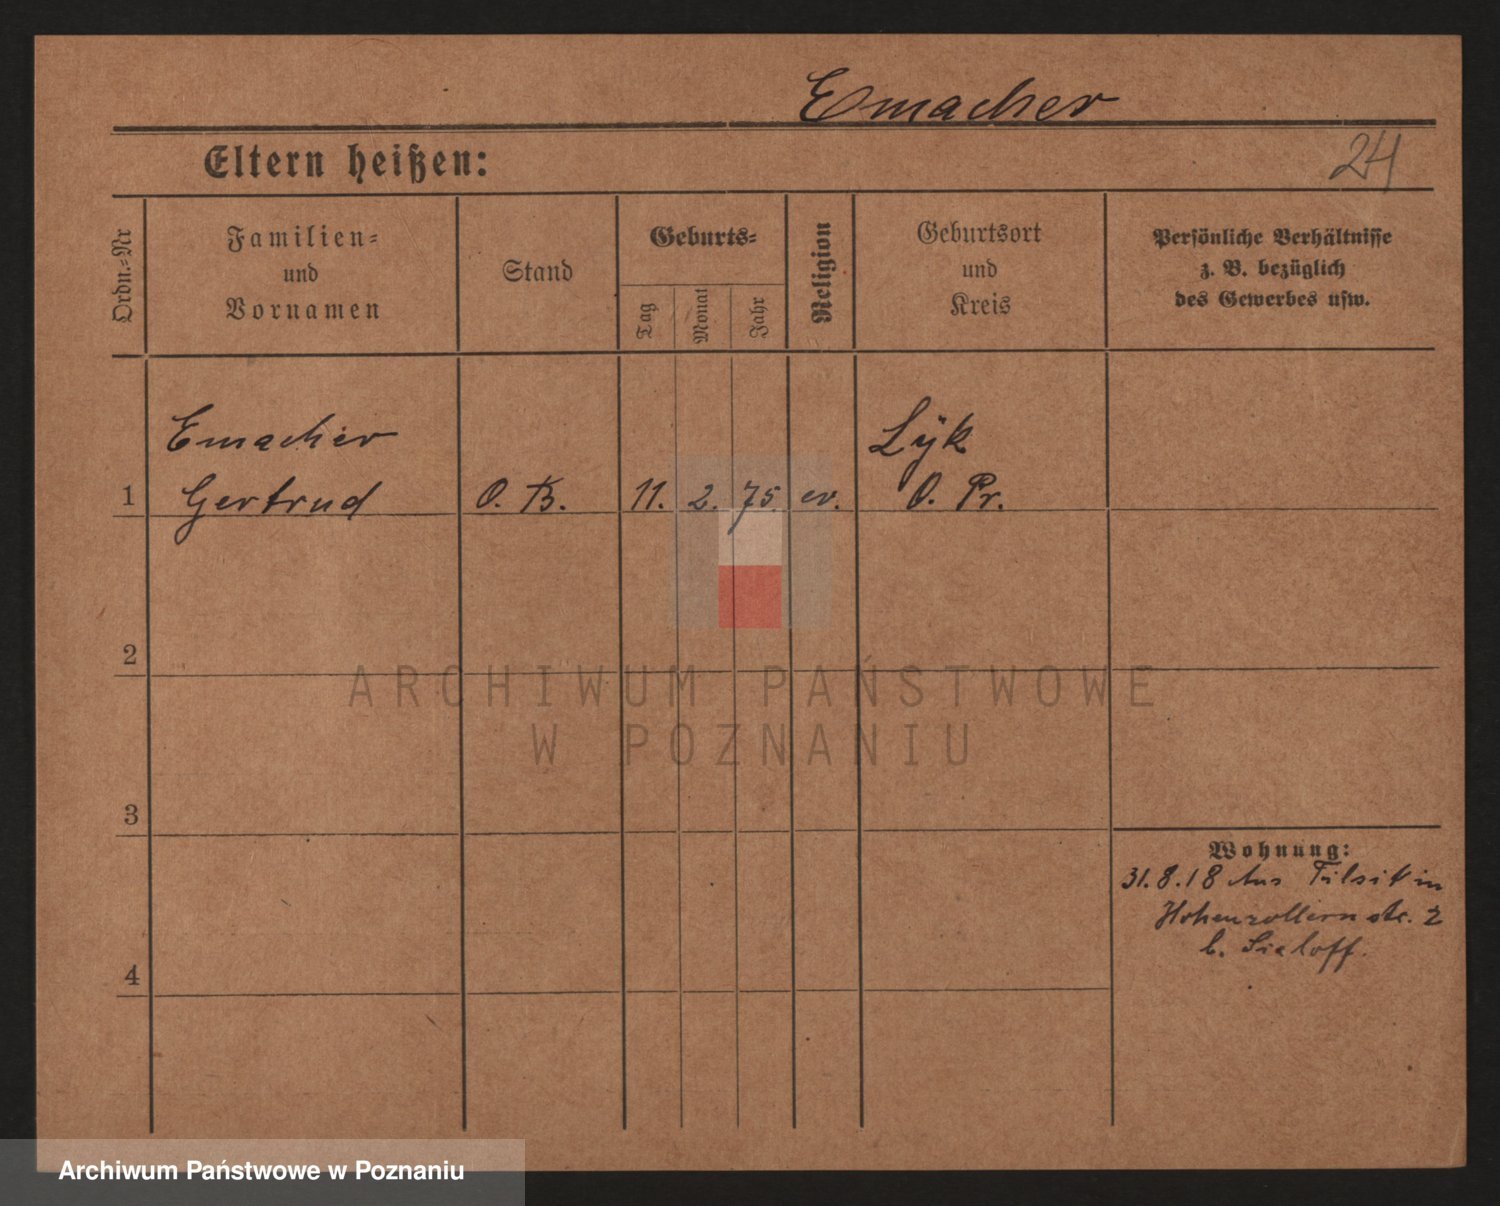 Emacher
Eltern heißen:
24
Ordn.-Nr
Familien-
und
Vornamen
Stand
Geburts-
Tag
Monat
Jahr
Religion
Geburtsort
und
Kreis
Persönliche Verhältnisse
z. B. bezüglich
des Gewerbes usw.
Emacher
Lÿk
1 Gertrud O. B. 11. 2. 75. ev. O. Pr.
2
ARCHIWUM PAŃSTWOWE
W POZNANIU
3
Wohnung:
31.8.18 aus Tilsit in
Hohenzollernstr. 2
b.
4
Archiwum Państwowe w Poznaniu